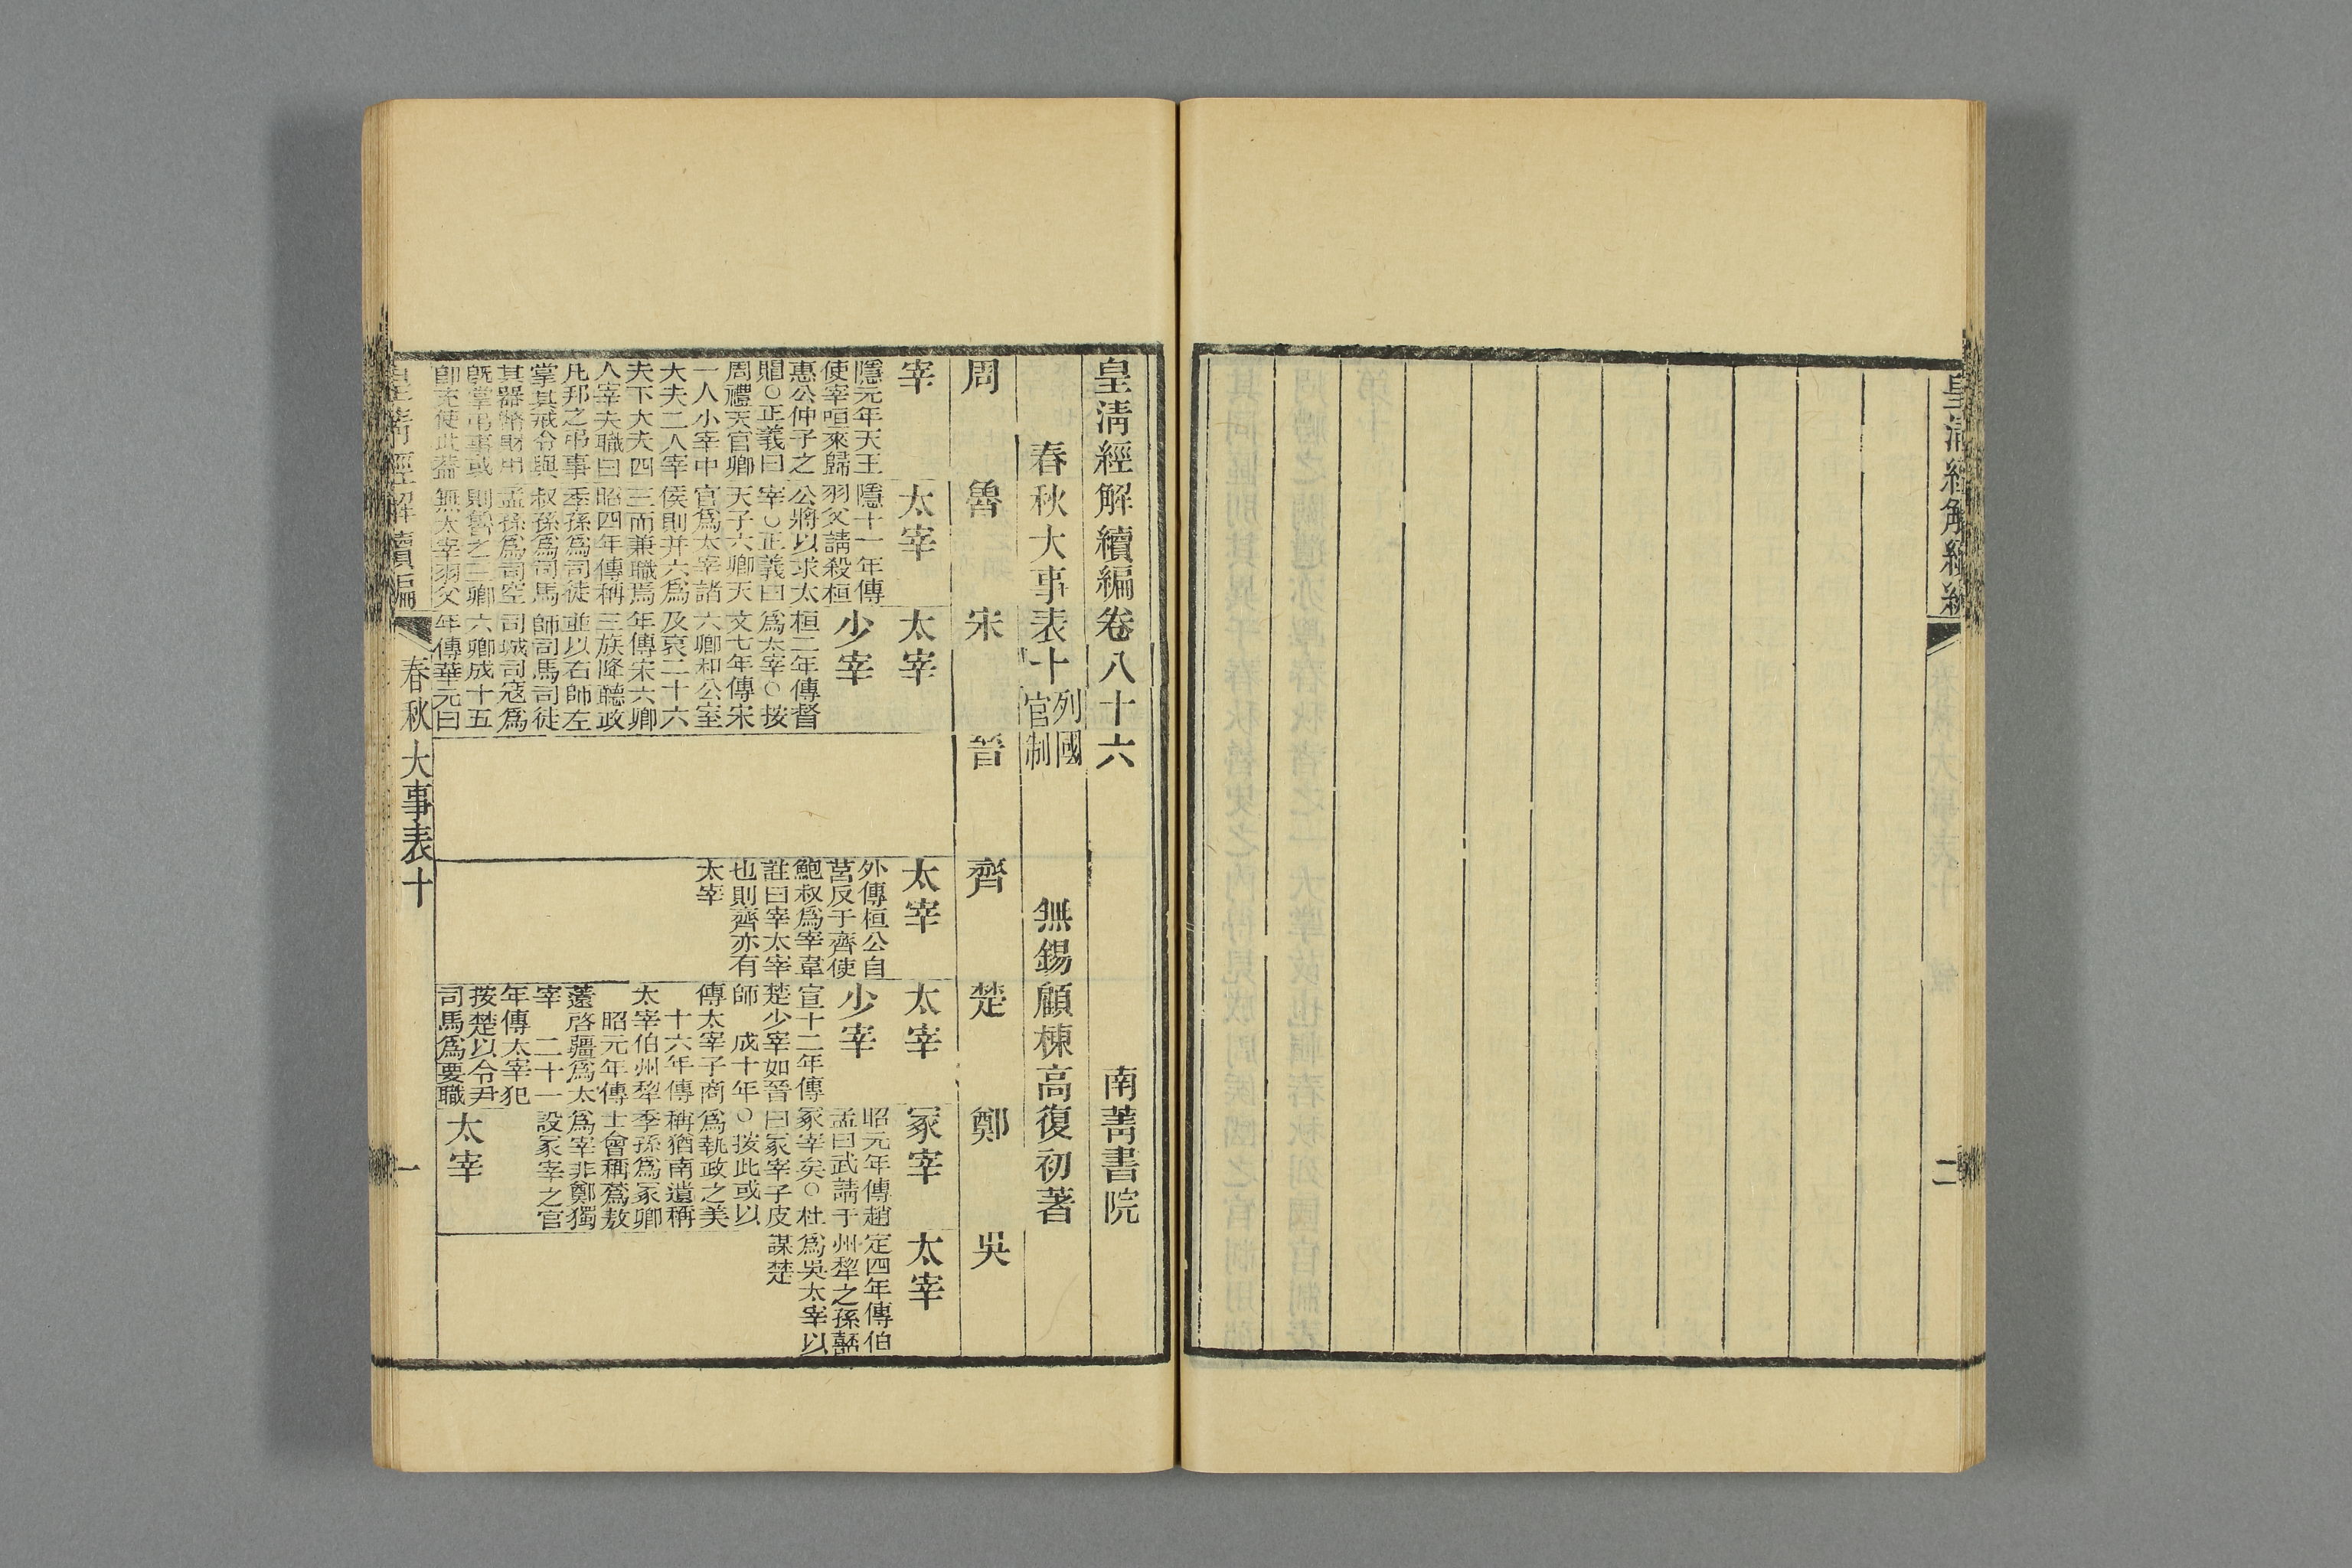 皇清經解續編
二
皇清經解續編卷八十六
南菁書院
春秋大事表十
列國
官制
無錫顧棟高復初著
周
魯
宋
晉
齊
楚
鄭
吳
宰
隱元年天王
使宰咺來歸
惠公仲子之
賵○正義曰
周禮天官卿
一人小宰中
大夫二人宰
夫下大夫四
人宰夫職曰
凡邦之弔事
掌其戒令與
其器幣財用
旣掌弔事或
卽充使此蓋
太宰
隱十一年傳
羽父請殺桓
公將以求太
宰○正義曰
天子六卿天
官爲太宰諸
侯則并六爲
三而兼職焉
昭四年傳稱
季孫爲司徒
叔孫爲司馬
孟孫爲司空
則魯之三卿
無太宰羽父
太宰
少宰
桓二年傳督
爲太宰○按
文七年傳宋
六卿和公室
及哀二十六
年傳宋六卿
三族降聽政
並以右師左
師司馬司徒
司城司寇爲
六卿成十五
年傳華元曰
太宰
外傳桓公自
莒反于齊使
鮑叔爲宰韋
註曰宰太宰
也則齊亦有
太宰
太宰
少宰
宣十二年傳
楚少宰如晉
師　成十年
傳太宰子商
十六年傳
太宰伯州犂
昭元年傳
薳啓疆爲太
宰　二十一
年傳太宰犯
按楚以令尹
司馬爲要職
冢宰
昭元年傳趙
孟曰武請于
冢宰矣○杜
曰冢宰子皮
○按此或以
爲執政之美
稱猶南遺稱
季孫爲冢卿
士會稱蒍敖
爲宰非鄭獨
設冢宰之官
太宰
太宰
定四年傳伯
州犂之孫嚭
爲吳太宰以
謀楚
皇清經解續編
春秋大事表十
一